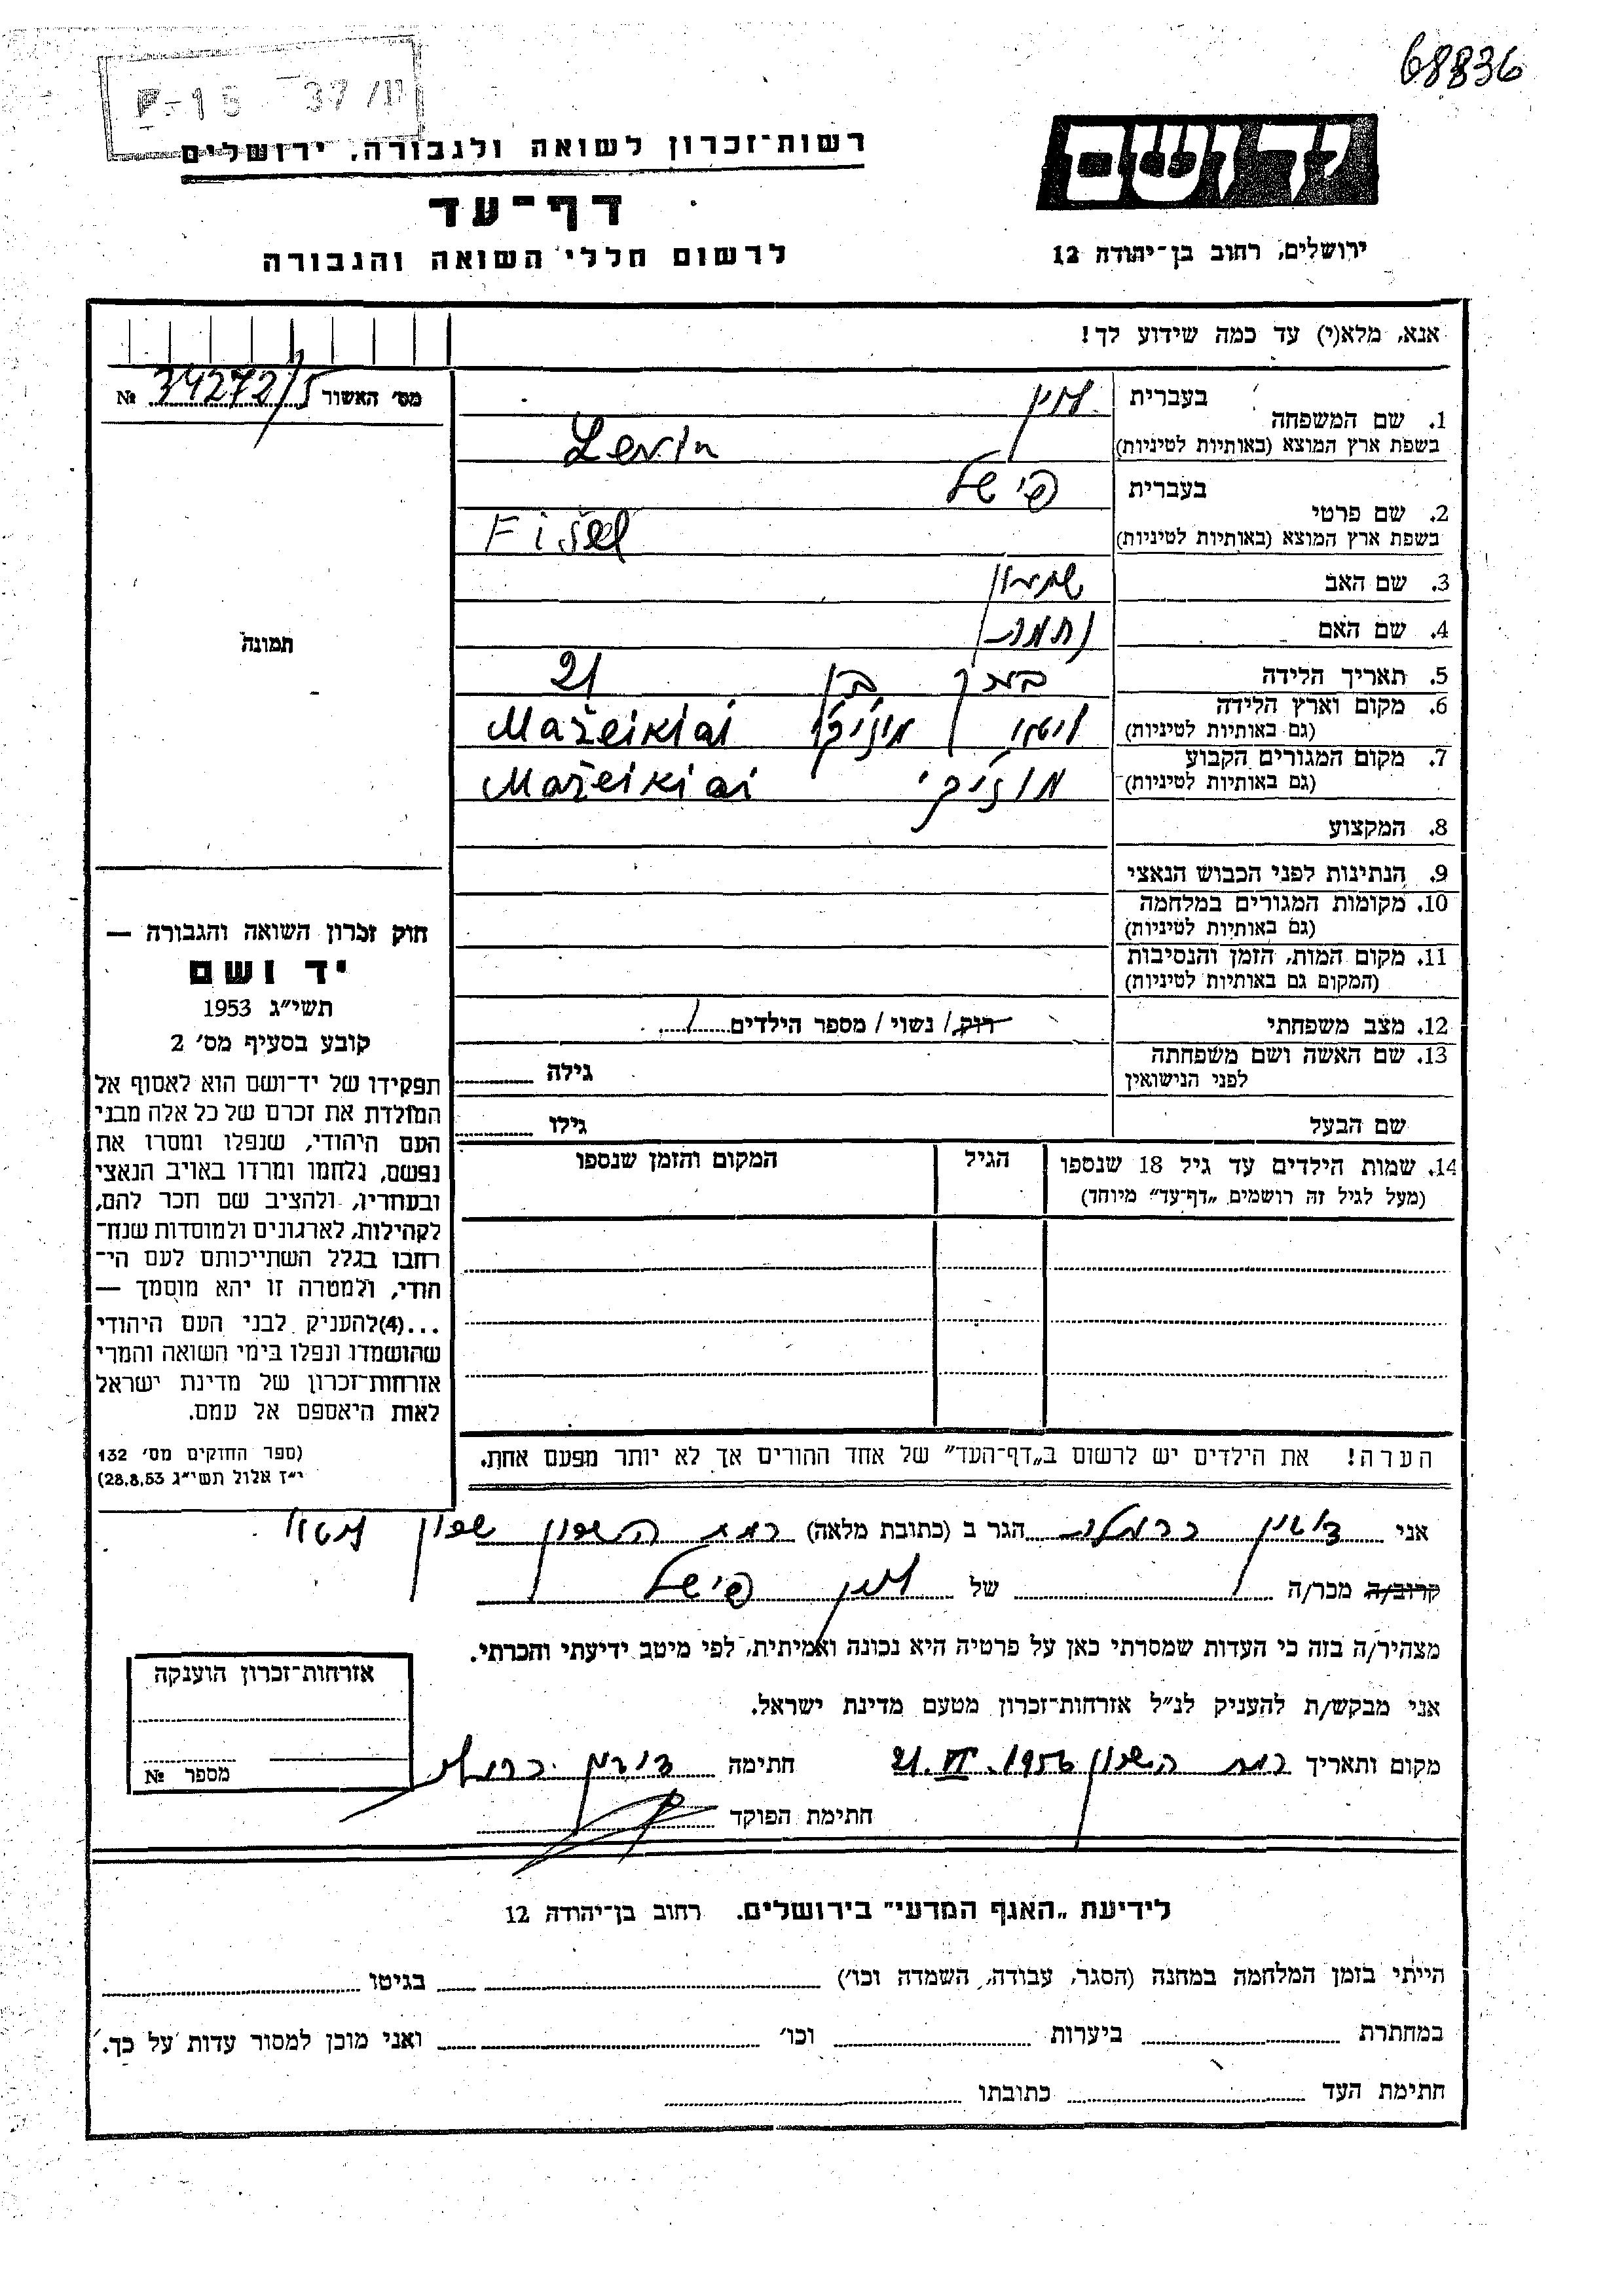 68836
רשות־זכרון לשואה ולגבורה, ירושלים
יד ושם
דף־עד
ירושלים, רחוב בן־יהודה 12
לרשום חללי השואה והגבורה
אנא, מלא(י) עד כמה שידוע לך!
מס׳ האשור 34272/5 №
1. שם המשפחה
בעברית לוין
בשפת ארץ המוצא (באותיות לטיניות) Levin
2. שם פרטי
בעברית פישל
בשפת ארץ המוצא (באותיות לטיניות) Fišel
3. שם האב שמעון
4. שם האם נחמה
5. תאריך הלידה בערך בן 21
6. מקום וארץ הלידה (גם באותיות לטיניות) ליטא Mažeikiai
7. מקום המגורים הקבוע (גם באותיות לטיניות) Mažeikiai
8. המקצוע
9. הנתינות לפני הכבוש הנאצי
10. מקומות המגורים במלחמה (גם באותיות לטיניות)
11. מקום המות, הזמן והנסיבות (המקום גם באותיות לטיניות)
12. מצב משפחתי רווק / נשוי / מספר הילדים 1
13. שם האשה ושם משפחתה לפני הנישואין גילה
שם הבעל גילו
14. שמות הילדים עד גיל 18 שנספו
(מעל לגיל זה רושמים „דף־עד״ מיוחד)
הגיל
המקום והזמן שנספו
תמונה
חוק זכרון השואה והגבורה —
יד ושם
תשי״ג 1953
קובע בסעיף מס׳ 2
תפקידו של יד־ושם הוא לאסוף אל
המולדת את זכרם של כל אלה מבני
העם היהודי, שנפלו ומסרו את
נפשם, נלחמו ומרדו באויב הנאצי
ובעוזריו, ולהציב שם וזכר להם,
לקהילות, לארגונים ולמוסדות שנח־
רבו בגלל השתייכותם לעם הי־
הודי, ולמטרה זו יהא מוסמך —
...(4)להעניק לבני העם היהודי
שהושמדו ונפלו בימי השואה והמרי
אזרחות־זכרון של מדינת ישראל
לאות היאספם אל עמם.
(ספר החוקים מס׳ 132
י״ז אלול תשי״ג 28,8,53)
הערה! את הילדים יש לרשום ב„דף־העד״ של אחד ההורים אך לא יותר מפעם אחת.
אני הגר ב (כתובת מלאה) רמת השרון שכון
קרוב/ה מכר/ה של לוין פישל
מצהיר/ה בזה כי העדות שמסרתי כאן על פרטיה היא נכונה ואמיתית, לפי מיטב ידיעתי והכרתי.
אני מבקש/ת להעניק לנ״ל אזרחות־זכרון מטעם מדינת ישראל.
מקום ותאריך רמת השרון 21.VI.1956 חתימה
חתימת הפוקד
אזרחות־זכרון הוענקה
מספר №
לידיעת „האגף המדעי״ בירושלים. רחוב בן־יהודה 12
הייתי בזמן המלחמה במחנה (הסגר, עבודה, השמדה וכו׳) בגיטו
במחתרת ביערות וכו׳ ואני מוכן למסור עדות על כך.
חתימת העד כתובתו